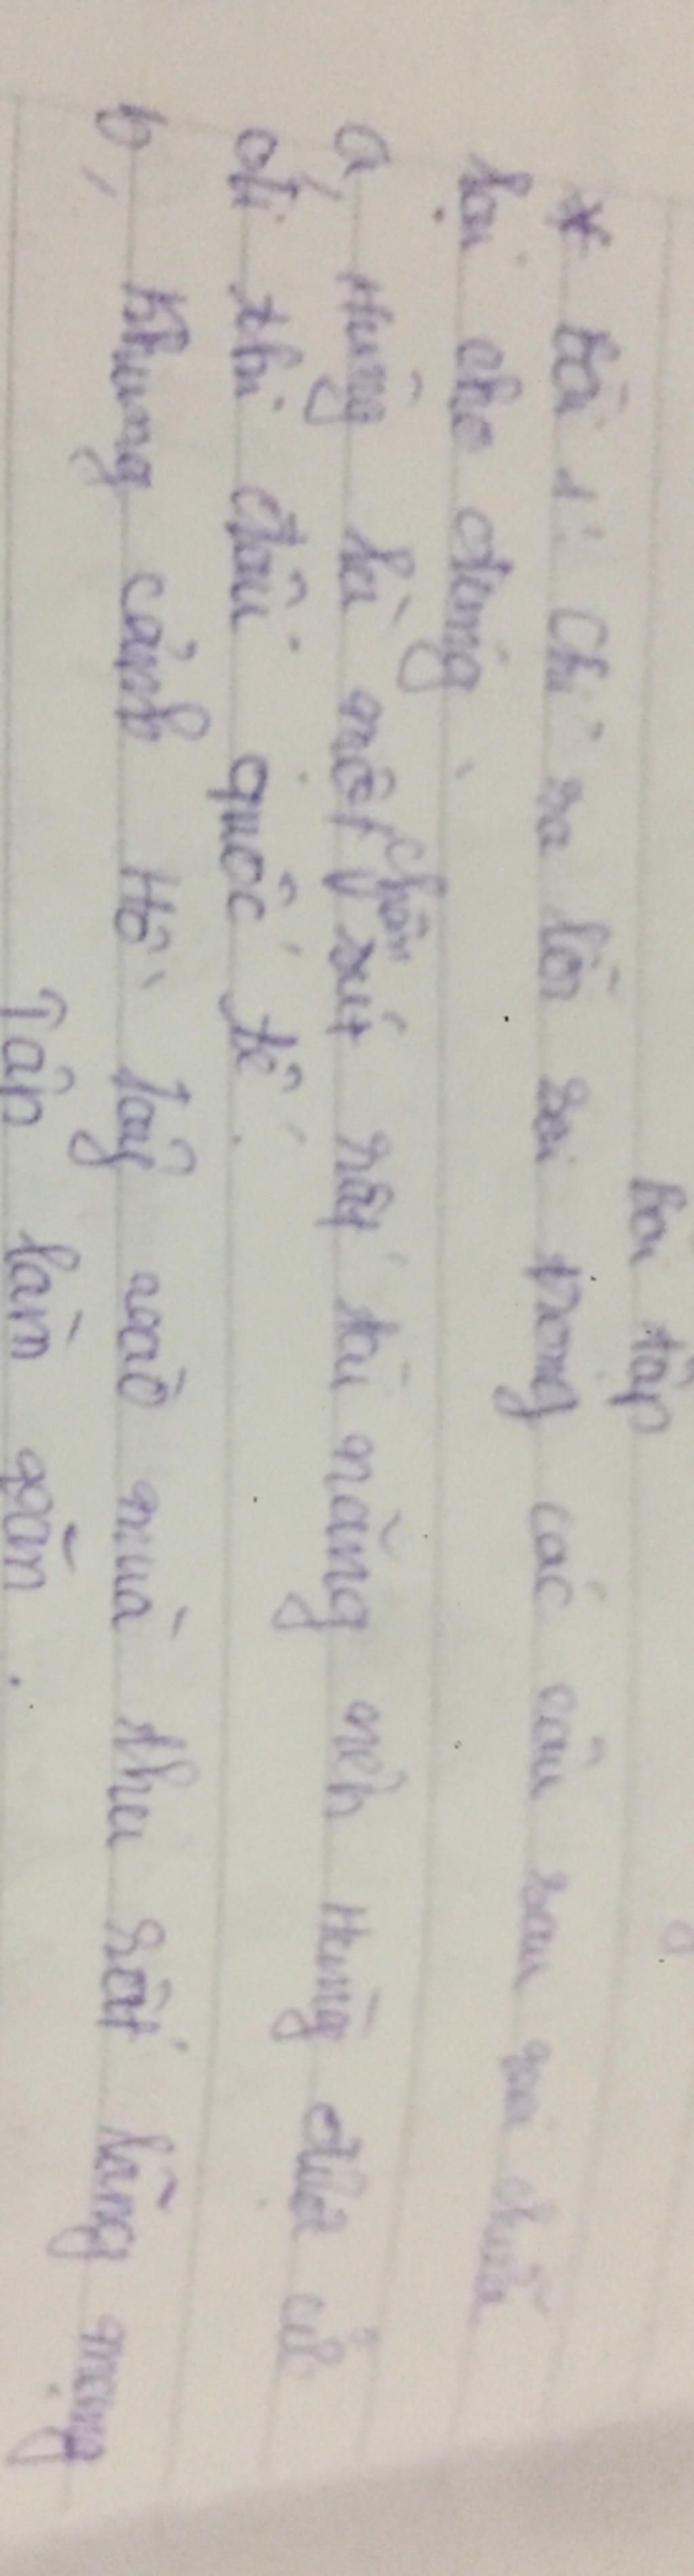 Bài tập
* Bài 1: Chỉ ra lỗi sai trong các câu sau và chữa
lại cho đúng.
a, Hùng là một chân sút rất tài năng nên Hùng được cử
đi thi đấu quốc tế.
b, Khung cảnh Hồ Tây vào mùa thu rất lãng mạng
Tập làm văn.